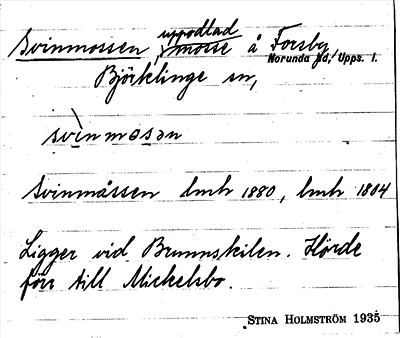 Svinmossen, uppodlad mosse å Forsby
Norunda hd, Upps. l.
Björklinge sn,
svìnmosan
Svinmåssen lmh 1880, lmh 1804
Ligger vid Brunnskilen. Hörde
förr till Mickelsbo.
STINA HOLMSTRÖM 1935